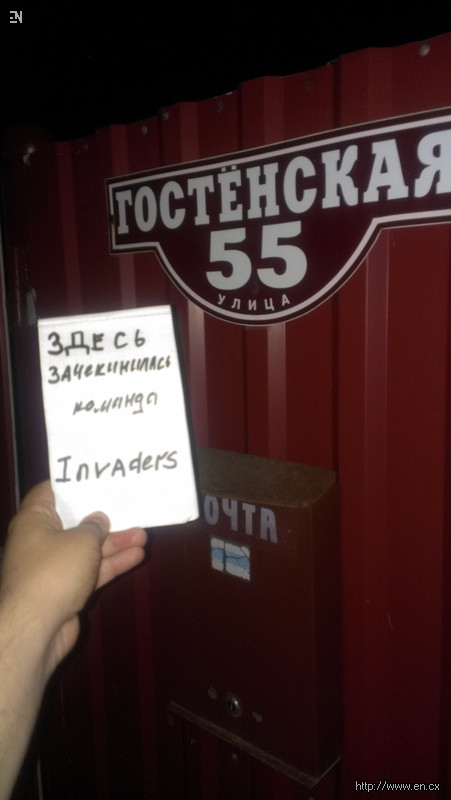 EN
ГОСТЁНСКАЯ
55
УЛИЦА
ЗДЕСЬ
ЗАЧЕКИНИЛАСЬ
команда
InvAders
ОЧТА
http://www.en.cx